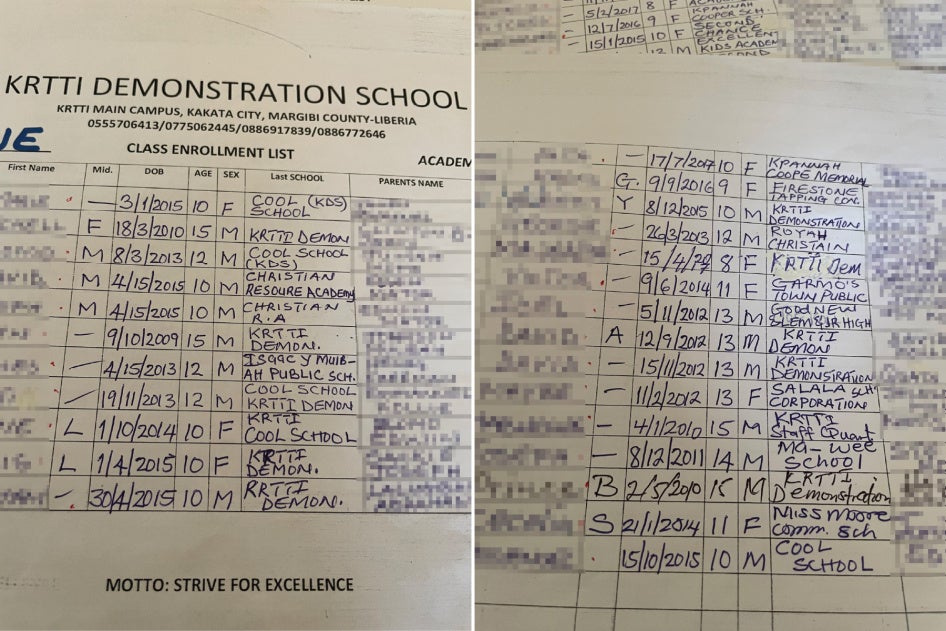 KRTTI DEMONSTRATION SCHOOL
KRTTI MAIN CAMPUS, KAKATA CITY, MARGIBI COUNTY-LIBERIA
0555706413/0775062445/0886917839/0886772646
CLASS ENROLLMENT LIST
ACADEM
First Name Mid. DOB AGE SEX Last SCHOOL PARENTS NAME
— 3/1/2015 10 F COOL (KDS)
SCHOOL
F 18/3/2010 15 M KRTTI DEMON
M 8/3/2013 12 M COOL SCHOOL
(KDS)
M 4/15/2015 10 M CHRISTIAN
RESOURE ACADEMY
M 4/15/2015 10 M CHRISTIAN
R.A
— 9/10/2009 15 M KRTTI
DEMON.
— 4/15/2013 12 M ISAAC Y MUIB-
AH PUBLIC SCH.
— 19/11/2013 12 M COOL SCHOOL
KRTTI DEMON
L 1/10/2014 10 F KRTTI
COOL SCHOOL
L 1/4/2015 10 F KRTTI
DEMON.
— 30/4/2015 10 M RRTTI
DEMON.
MOTTO: STRIVE FOR EXCELLENCE
— 5/2/2017 8 F KPANNAH
COOPER SCH.
— 12/7/2016 9 F SECOND
CHANCE
— 15/1/2015 10 F EXCELLENT
KIDS ACADEM
M
— 17/7/2017 10 F KPANNAH
COOPE MEMORIAL
G. 9/9/2016 9 F FIRESTONE
TAPPING
Y 8/12/2015 10 M KRTTI
DEMONSTRATION
— 26/3/2013 12 M ROYAH
CHRISTAIN
— 15/4/ 8 F KRTTI Dem
— 9/6/2014 11 F GARMO'S
TOWN PUBLIC
— 5/11/2012 13 M GOOD NEW
HIGH
A 12/9/2012 13 M KRTTI
DEMON
— 15/11/2012 13 M KRTTI
DEMONSTRATION
— 11/2/2012 13 F SALALA SCH
CORPORATION
— 4/1/2010 15 M KRTTI
Staff Quart
— 8/12/2011 14 M Ma-wee
SCHOOL
B 2/5/2010 15 M KRTTI
Demonstration
S 21/1/2014 11 F Miss Moore
Comm. Sch
15/10/2015 10 M COOL
SCHOOL